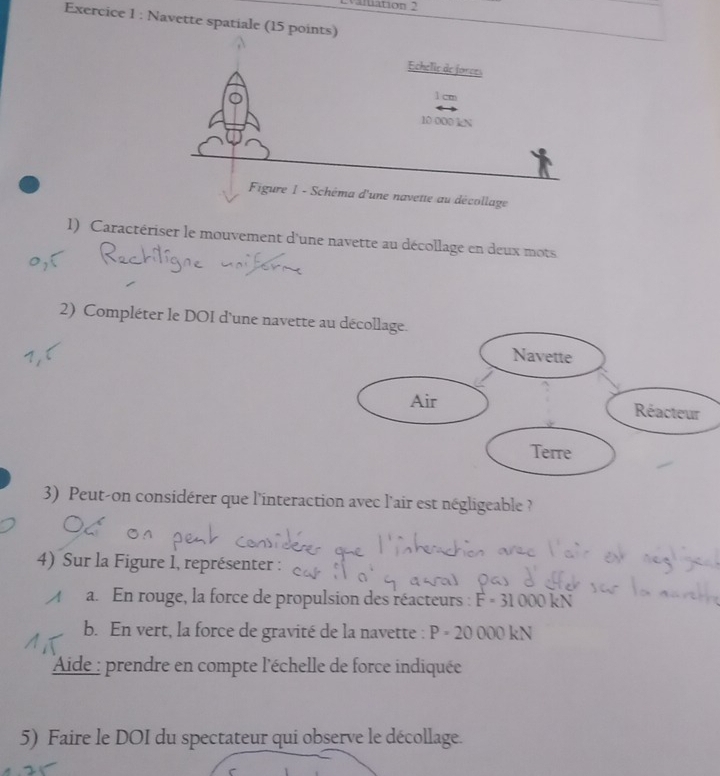 Evaluation 2
Exercice 1 : Navette spatiale (15 points)
Echelle de forces
1 cm
10 000 kN
Figure 1 - Schéma d'une navette au décollage
1) Caractériser le mouvement d'une navette au décollage en deux mots
0,5 Rectiligne uniforme
2) Compléter le DOI d'une navette au décollage.
1,5
Navette
Air
Réacteur
Terre
3) Peut-on considérer que l'interaction avec l'air est négligeable ?
0 Oui on peut considérer que l'interaction avec l'air est
4) Sur la Figure 1, représenter :
car il n'y aura pas d'effet sur la navette
1 a. En rouge, la force de propulsion des réacteurs : F = 31 000 kN
1,5 b. En vert, la force de gravité de la navette : P = 20 000 kN
Aide : prendre en compte l'échelle de force indiquée
5) Faire le DOI du spectateur qui observe le décollage.